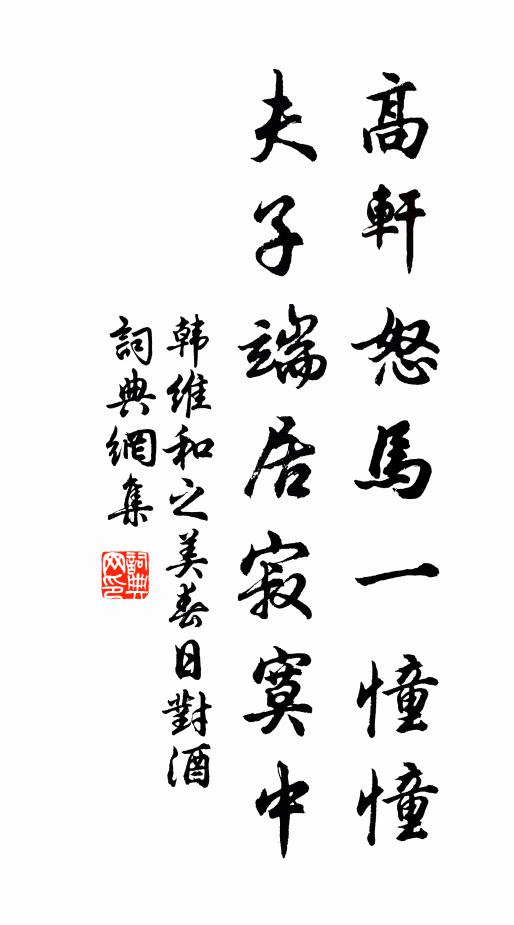 高軒怒馬一憧憧
夫子端居寂寞中
韩維和之美春日對酒
詞典網集
詞典网印